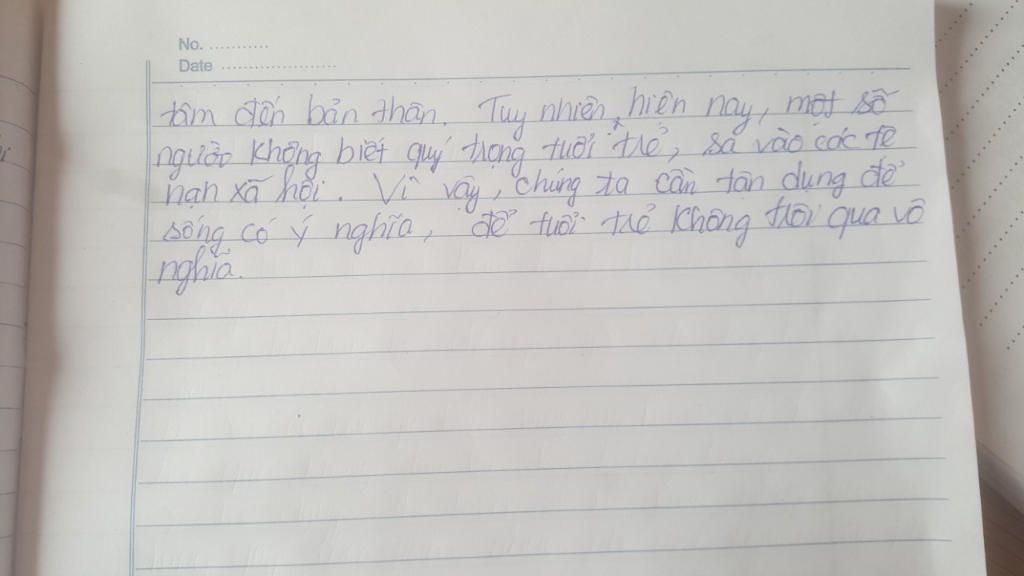 No. ...........
Date .....................
tâm đến bản thân. Tuy nhiên, hiện nay, một số
người không biết quý trọng tuổi trẻ, sa vào các tệ
nạn xã hội. Vì vậy, chúng ta cần tận dụng để
sống có ý nghĩa, để tuổi trẻ không trôi qua vô
nghĩa.